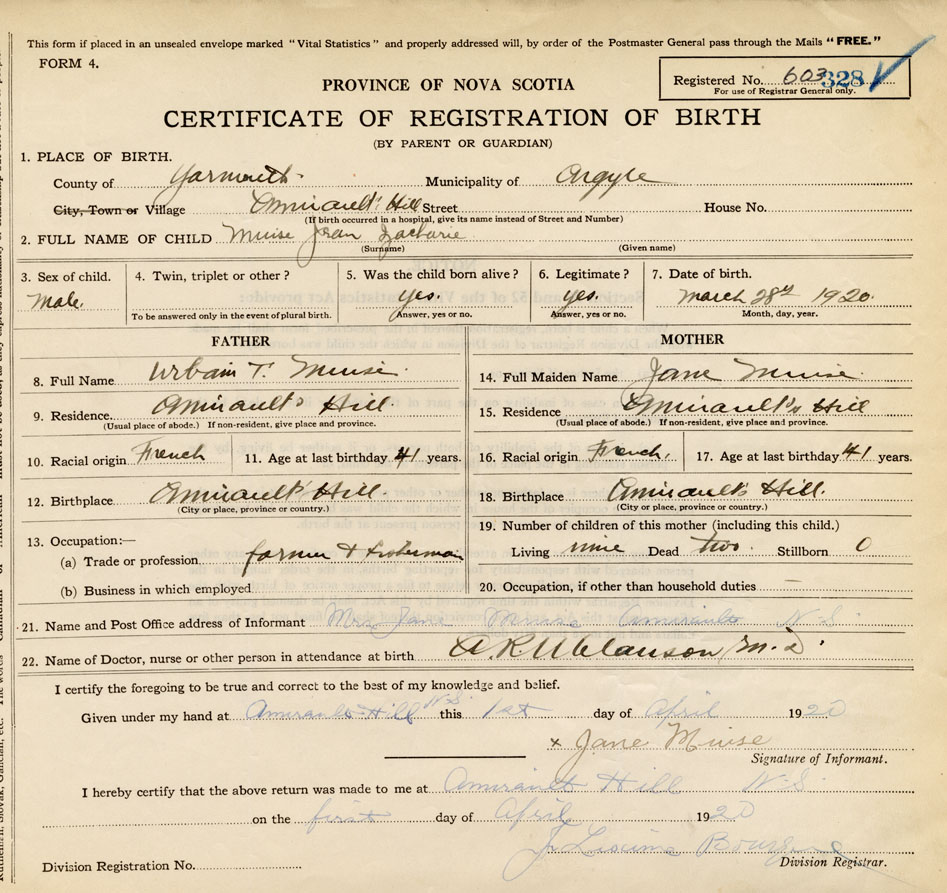 This form if placed in an unsealed envelope marked "Vital Statistics" and properly addressed will, by order of the Postmaster General pass through the Mails "FREE."
FORM 4.
Registered No. 603 328
For use of Registrar General only.
PROVINCE OF NOVA SCOTIA
CERTIFICATE OF REGISTRATION OF BIRTH
(BY PARENT OR GUARDIAN)
1. PLACE OF BIRTH.
County of Yarmouth. Municipality of Argyle
City, Town or Village Amirault's Hill Street House No.
(If birth occurred in a hospital, give its name instead of Street and Number)
2. FULL NAME OF CHILD Muise Jean Zacharie
(Surname) (Given name)
3. Sex of child. 4. Twin, triplet or other? 5. Was the child born alive? 6. Legitimate? 7. Date of birth.
Male. yes. yes. March 28th 1920.
To be answered only in the event of plural birth. Answer, yes or no. Answer, yes or no. Month, day, year.
FATHER MOTHER
8. Full Name Urbain T. Muise. 14. Full Maiden Name Jane Muise.
9. Residence. Amirault's Hill 15. Residence Amirault's Hill
(Usual place of abode.) If non-resident, give place and province. (Usual place of abode.) If non-resident, give place and province.
10. Racial origin French 11. Age at last birthday 41 years. 16. Racial origin French. 17. Age at last birthday 41 years.
12. Birthplace Amirault's Hill. 18. Birthplace Amirault's Hill.
(City or place, province or country.) (City or place, province or country.)
13. Occupation:— 19. Number of children of this mother (including this child.)
(a) Trade or profession farmer & fisherman Living nine Dead two. Stillborn 0
(b) Business in which employed 20. Occupation, if other than household duties —
21. Name and Post Office address of Informant Mrs Jane Muise Amiraults N.S
22. Name of Doctor, nurse or other person in attendance at birth A.R. M.D.
I certify the foregoing to be true and correct to the best of my knowledge and belief.
Given under my hand at Amiraults Hill N.S. this 1st day of April 1920
x Jane Muise
Signature of Informant.
I hereby certify that the above return was made to me at Amirault Hill N.S
on the first day of April 1920
J. Bourque
Division Registration No. Division Registrar.